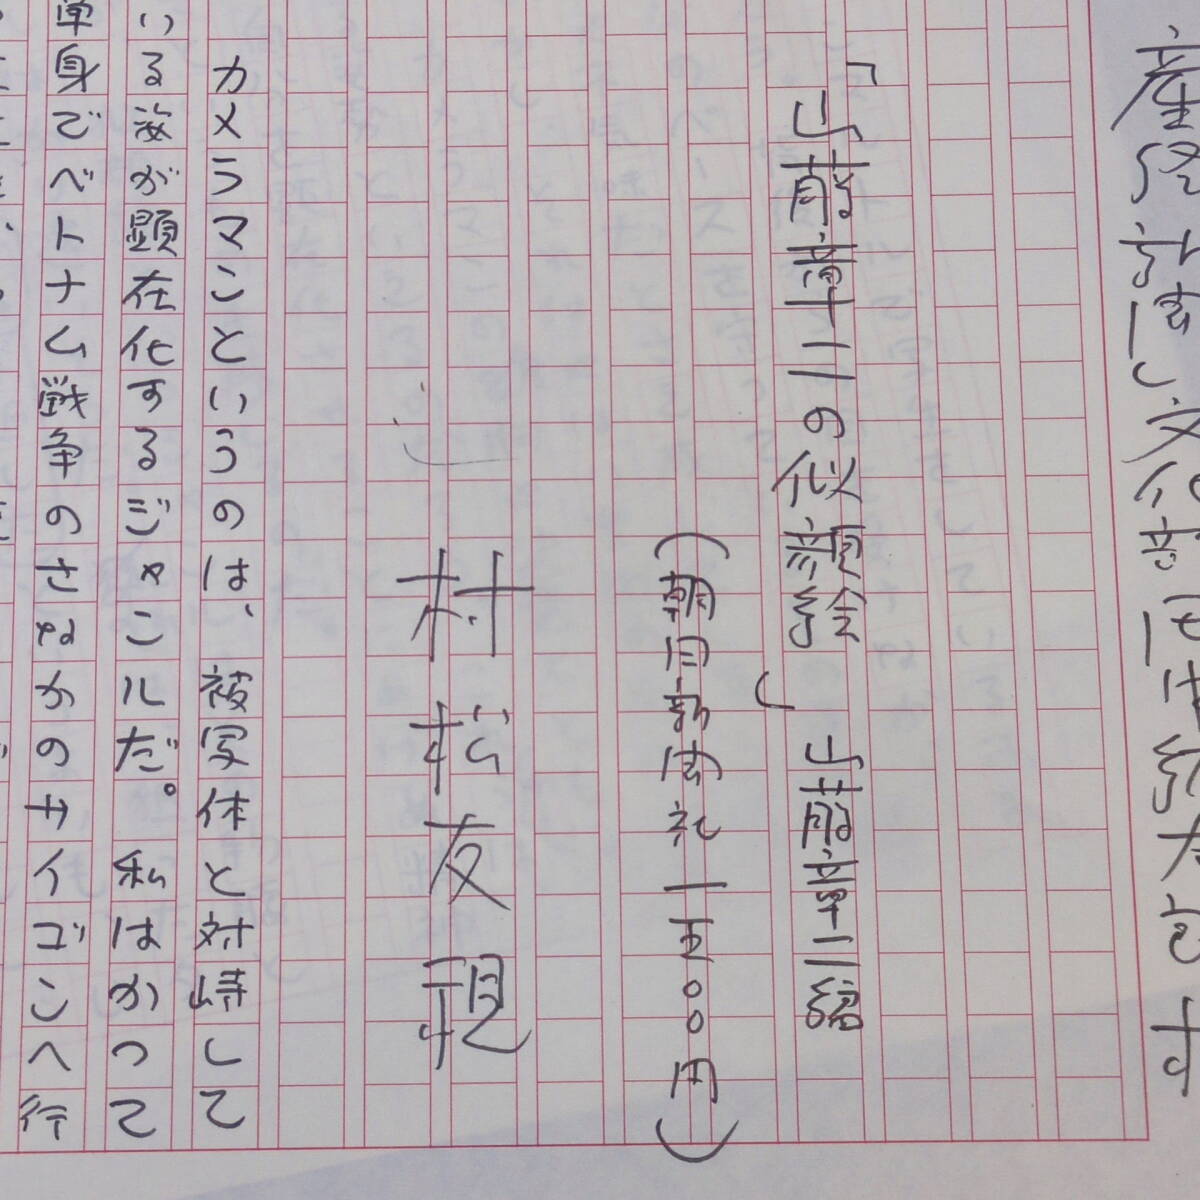 産経新聞 文化部
「山藤章二の似顔絵」 山藤章二編
（朝日新聞社 一五〇〇円）
村松友視
カメラマンというのは、被写体と対峙して
いる姿が顕在化するジャンルだ。私はかつて
単身でベトナム戦争のさなかのサイゴンへ行